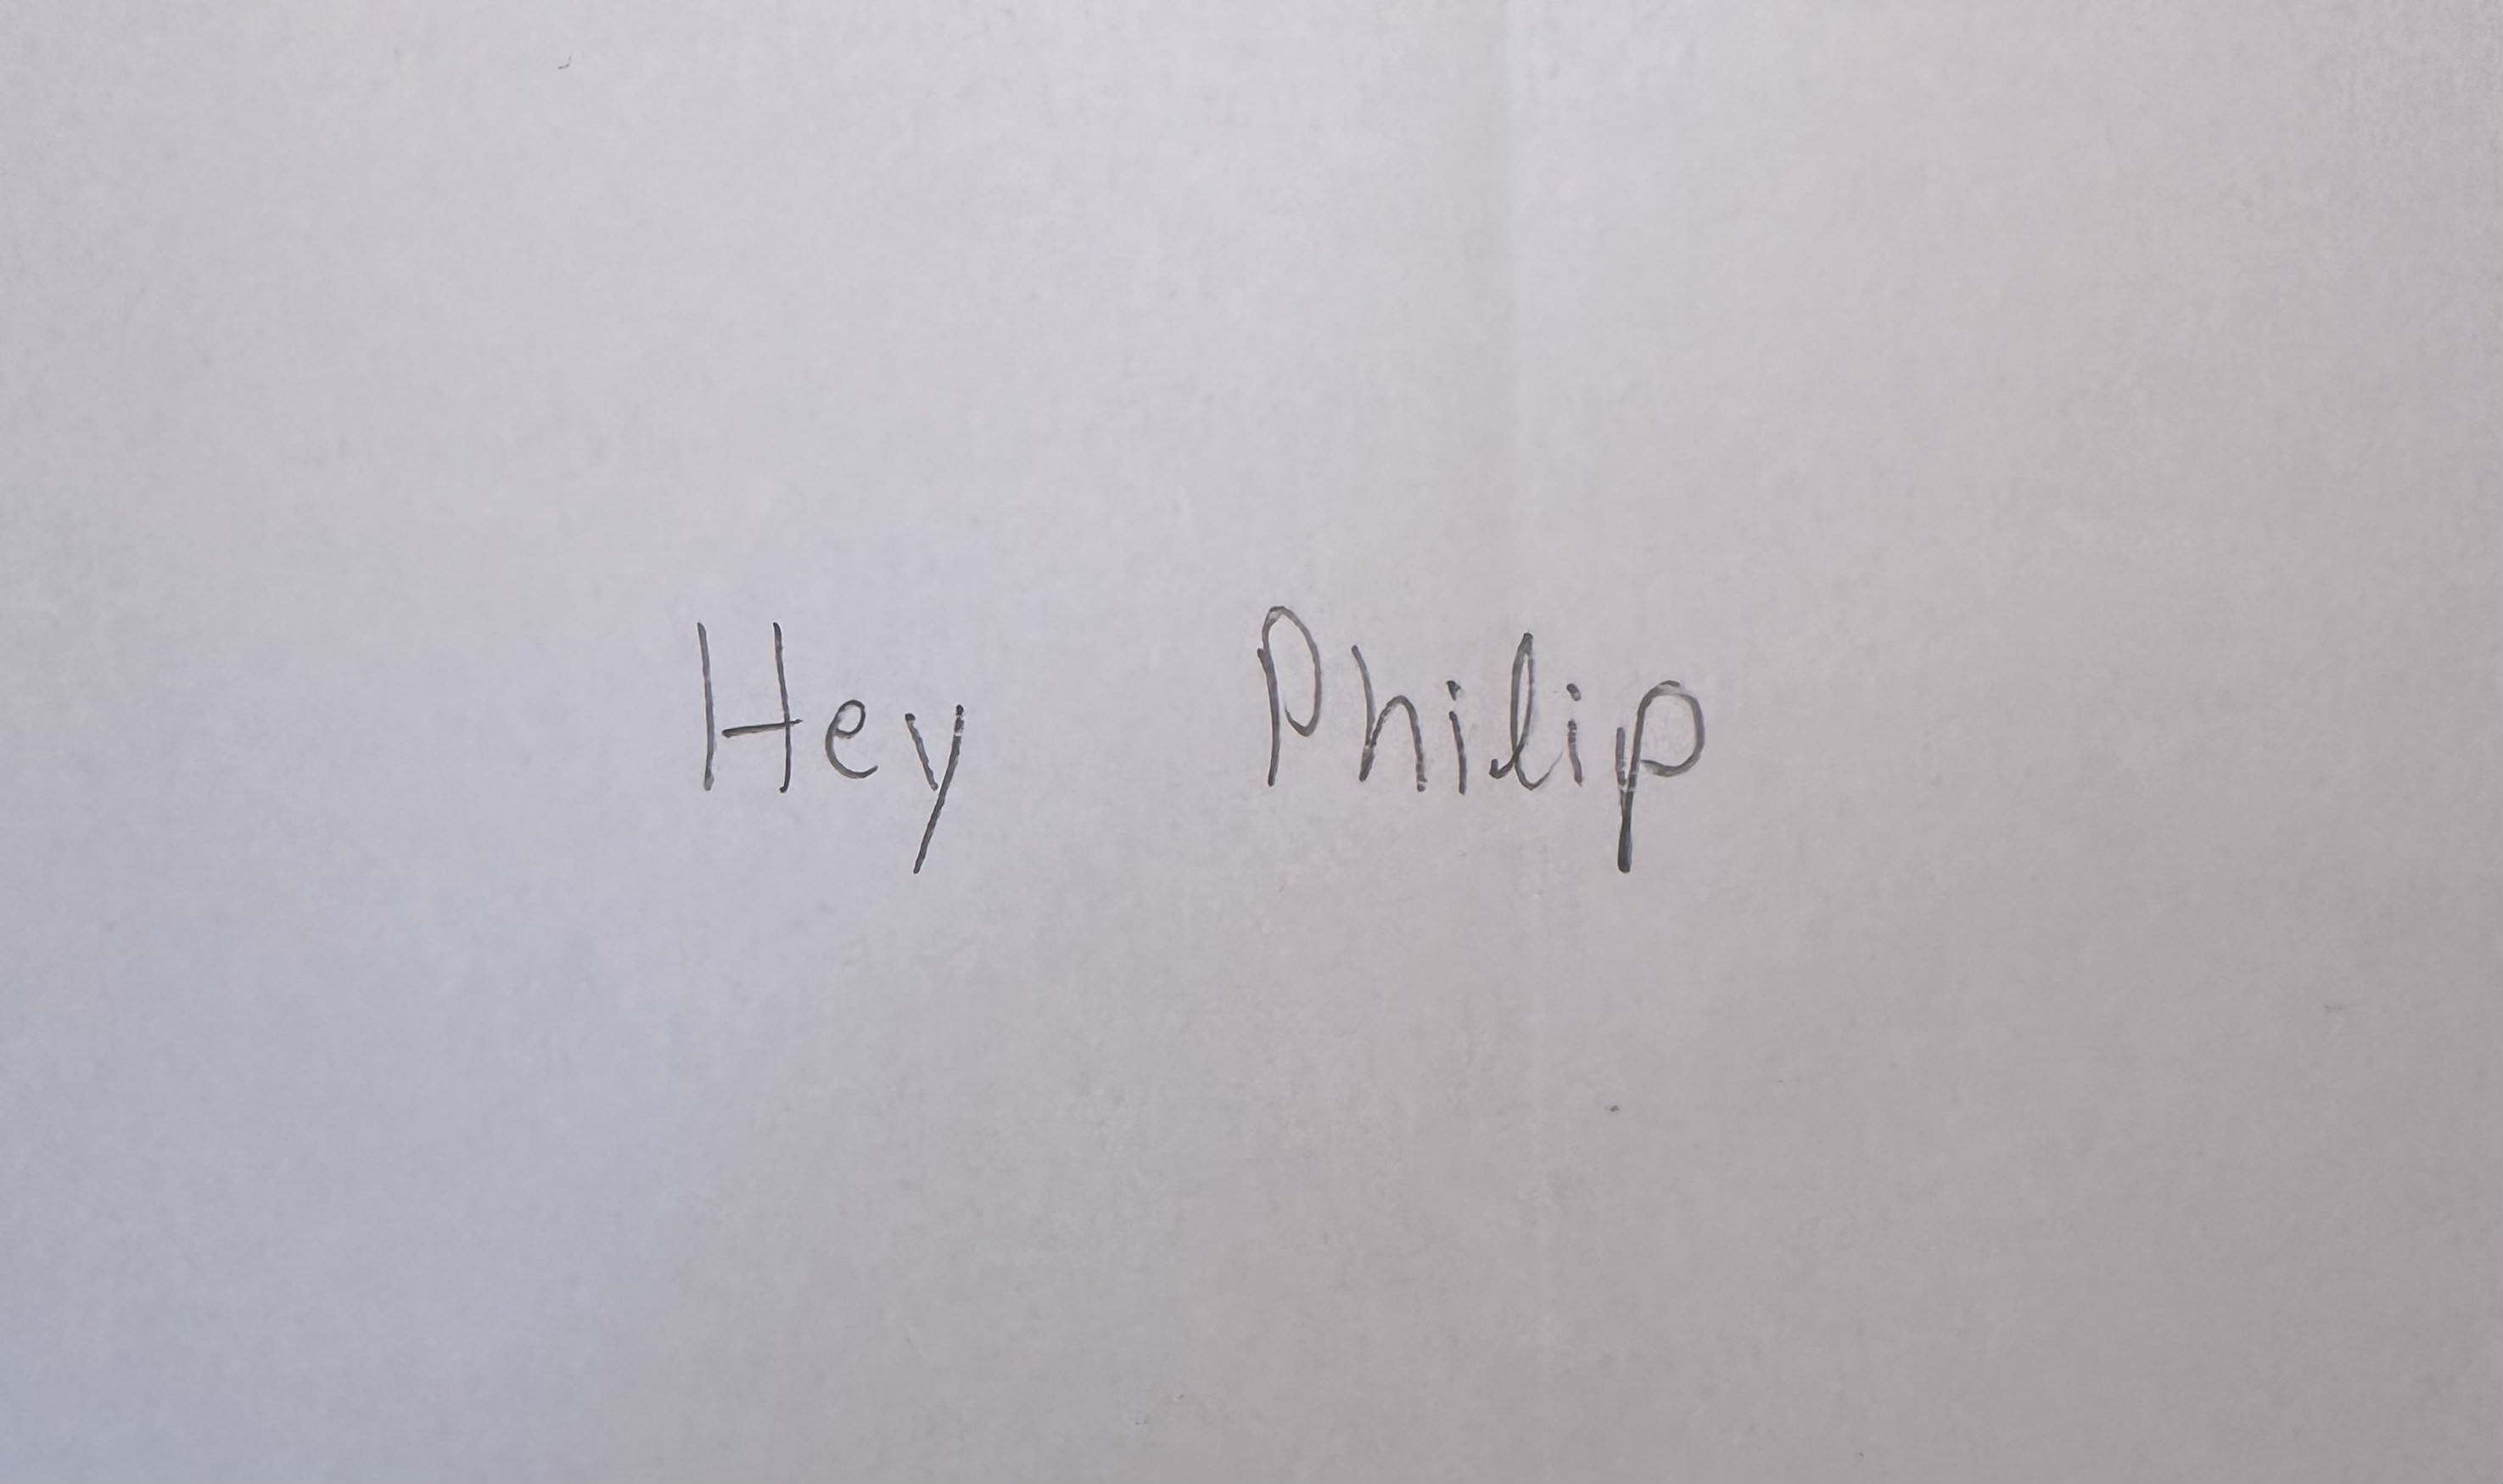 Hey Philip